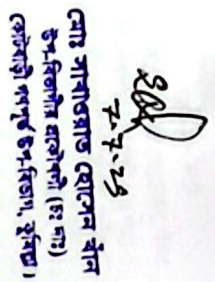 7.7.25
মোঃ সাখাওয়াত হোসেন খাঁন
উপ-বিভাগীয় প্রকৌশলী (চঃ দাঃ)
গণপূর্ত উপ-বিভাগ, কুমিল্লা।